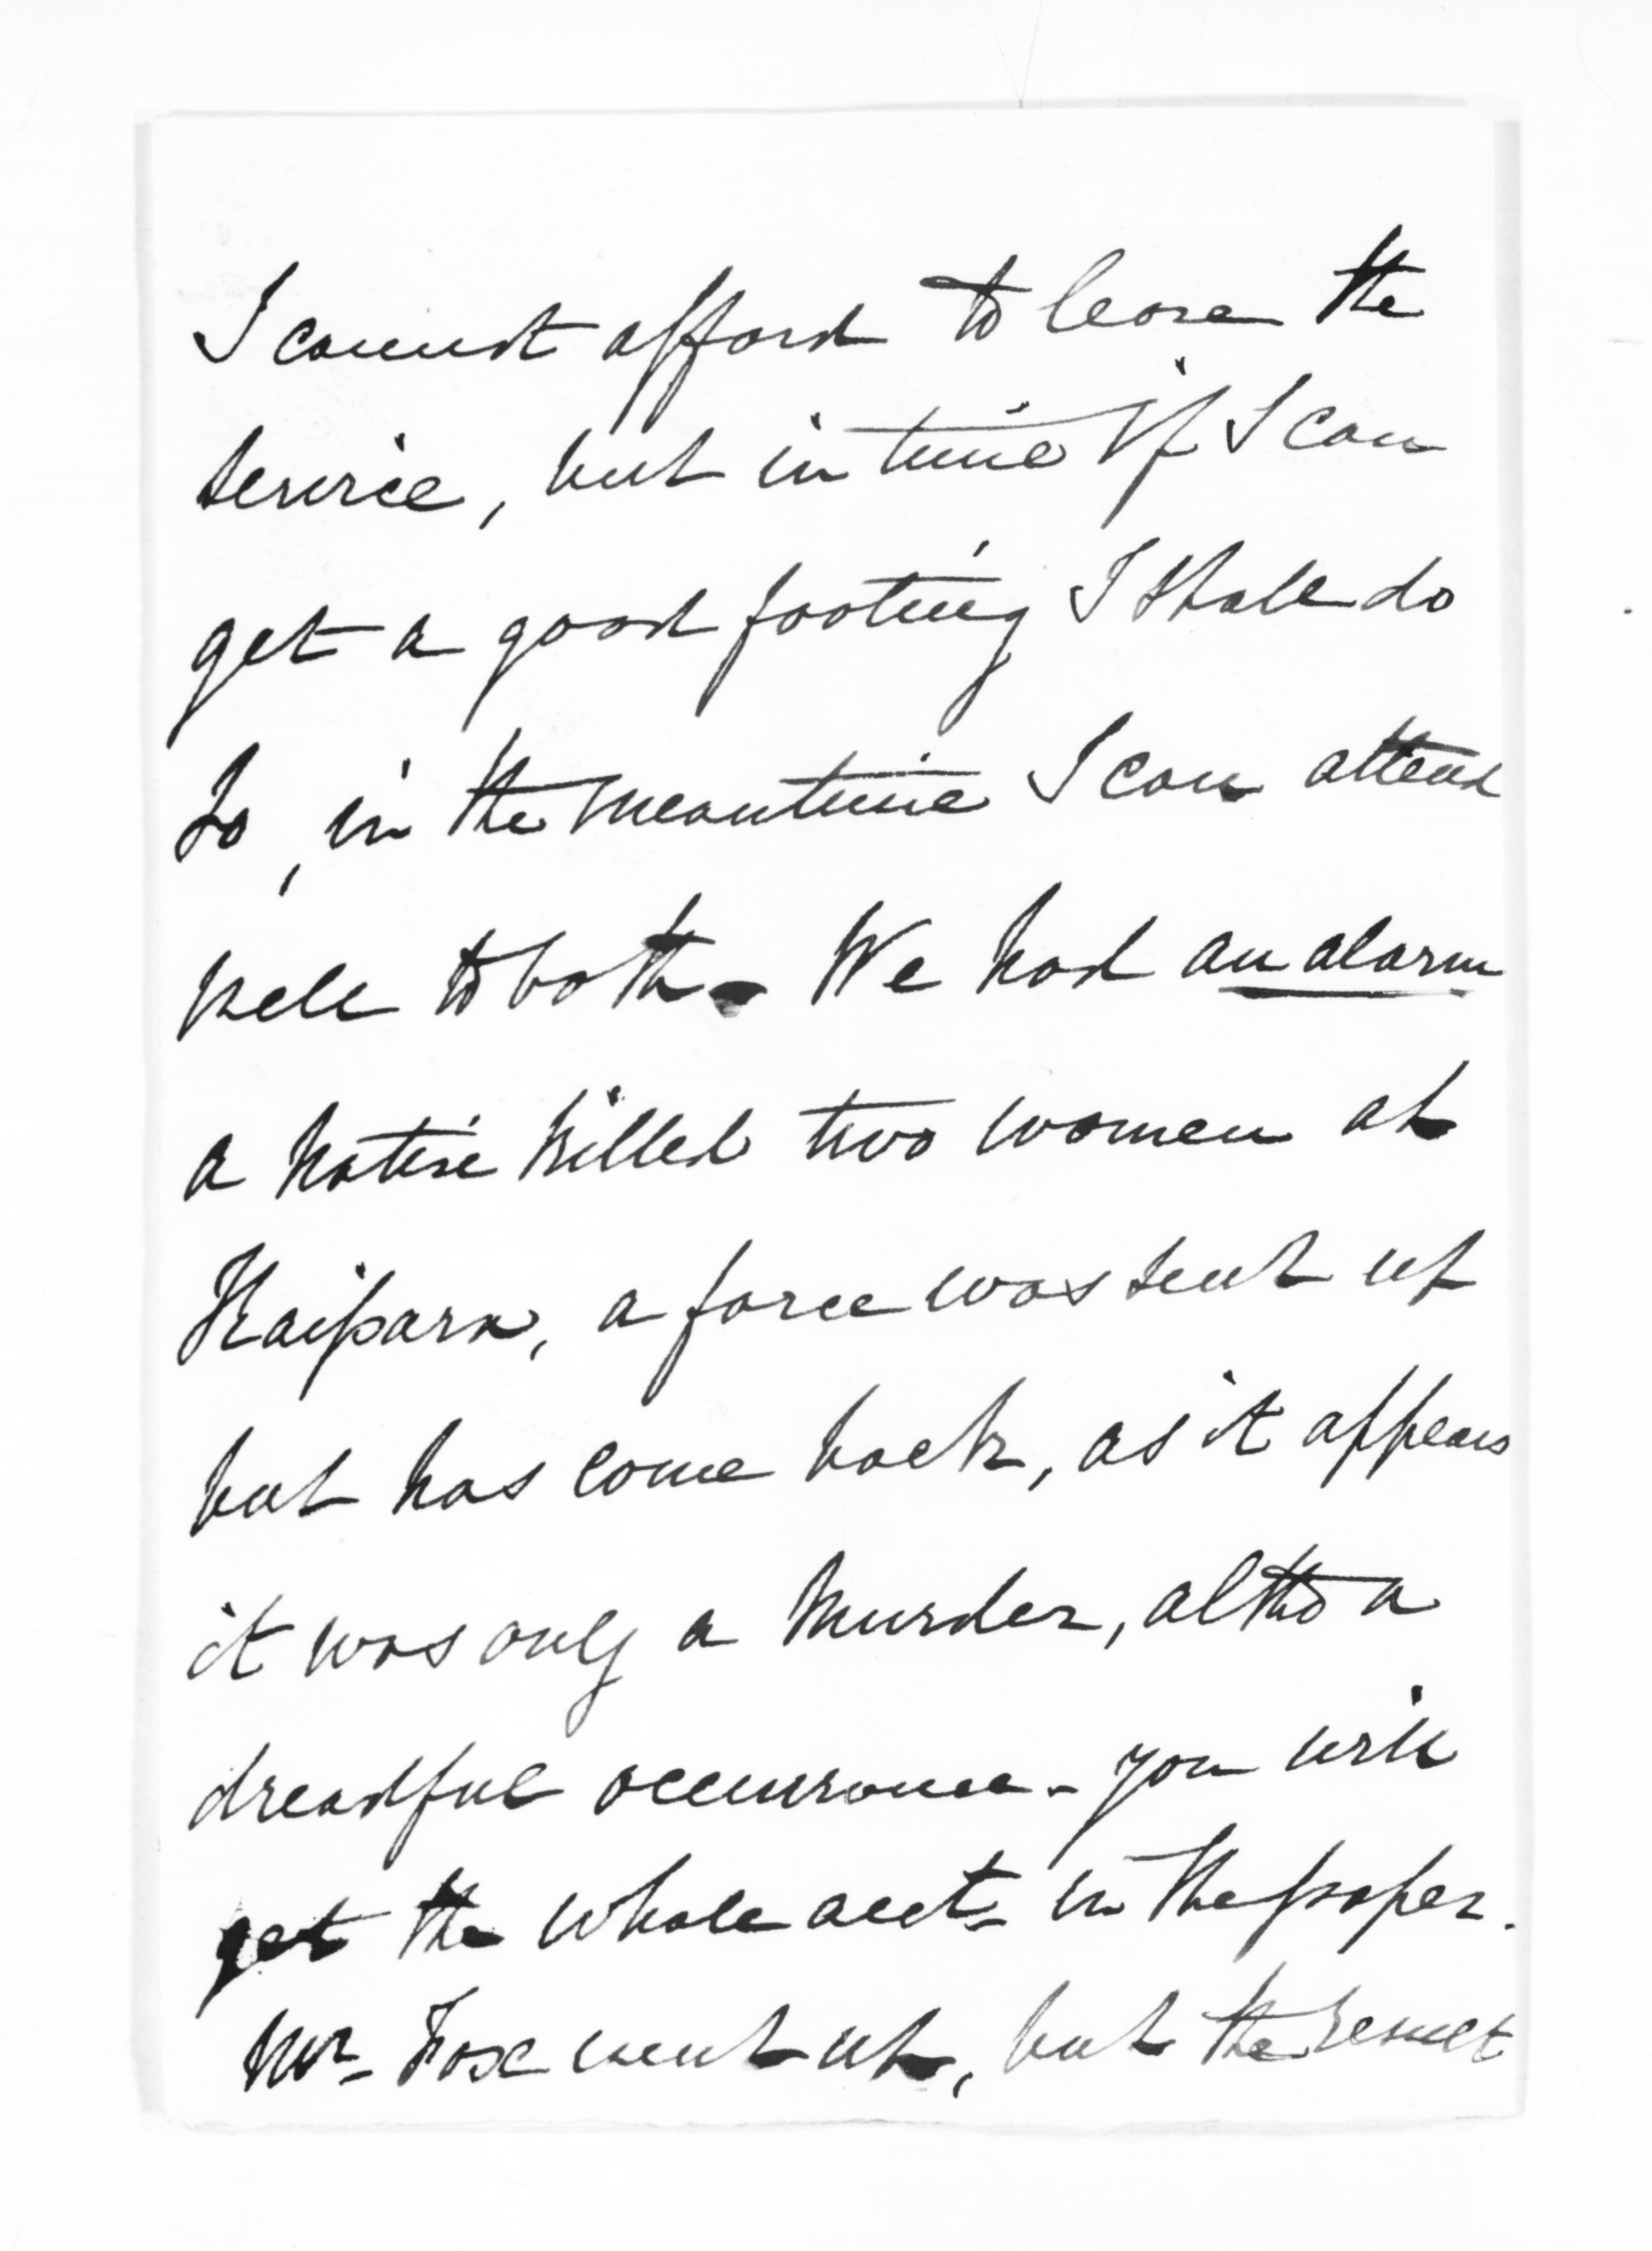 I cannot afford to leave the
service, but in time if I can
get a good footing I shall do
so, in the meantime I can attend
well to both. We had an alarm
a native killed two women at
Kaipara, a force was sent up
but has come back, as it appears
it was only a murder, altho a
dreadful occurrence - you will
get the whole acct. in the paper.
Mr. Fox went up, but the result